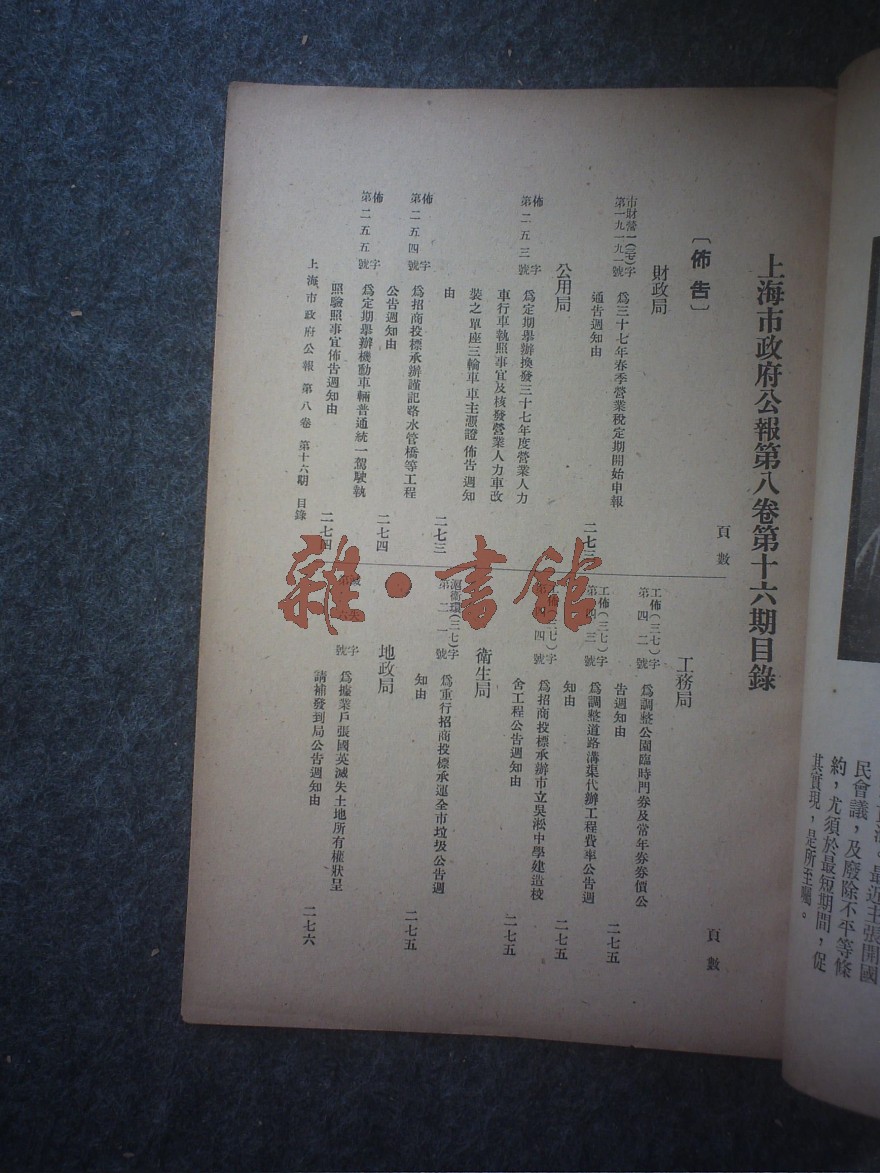 上海市政府公報第八卷第十六期目錄
〔佈告〕
頁數
財政局
市財營一(三七)字
第一九一九一號
爲三十七年春季營業稅定期開始申報
通告週知由
二七三
公用局
佈字
第二五三號
爲定期舉辦換發三十七年度營業人力
車行車執照事宜及核發營業人力車改
裝之單座三輪車車主憑證佈告週知
由
二七三
佈字
第二五四號
爲招商投標承辦謹記路水管橋等工程
公告週知由
二七四
佈字
第二五五號
爲定期舉辦機動車輛普通統一駕駛執
照驗照事宜佈告週知由
二七四
頁數
工務局
工佈(三七)字
第四二號
爲調整公園臨時門券及常年券券價公
告週知由
二七五
工佈(三七)字
第四三號
爲調整道路溝渠代辦工程費率公告週
知由
二七五
工佈(三七)字
四號
爲招商投標承辦市立吳淞中學建造校
舍工程公告週知由
二七五
衛生局
滬衛環(三七)字
第二一號
爲重行招商投標承運全市垃圾公告週
知由
二七五
地政局
字
號
爲據業戶張國英滅失土地所有權狀呈
請補發到局公告週知由
二七六
上海市政府公報 第八卷 第十六期 目錄
雜·書館
最近主張開國
民會議，及廢除不平等條
約，尤須於最短期間，促
其實現，是所至囑。